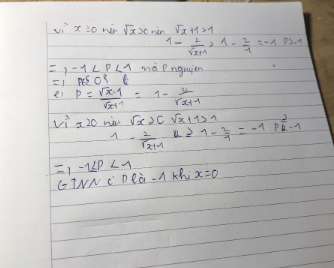 Vì x≥0 nên √x≥0 nên √x+1≥1
1 - 2/√x+1 ≥ 1 - 2/1 = -1 P≥-1
=, -1 < P < 1 mà P nguyên
=,
P = √x-1/√x+1 = 1 - 2/√x+1
Vì x≥0 nên √x≥0 √x+1≥1
1 - 2/√x+1 ≥ 1 - 2/1 = -1 P ≥ -1
=, -1≤P<1
GTNN P là -1 khi x=0